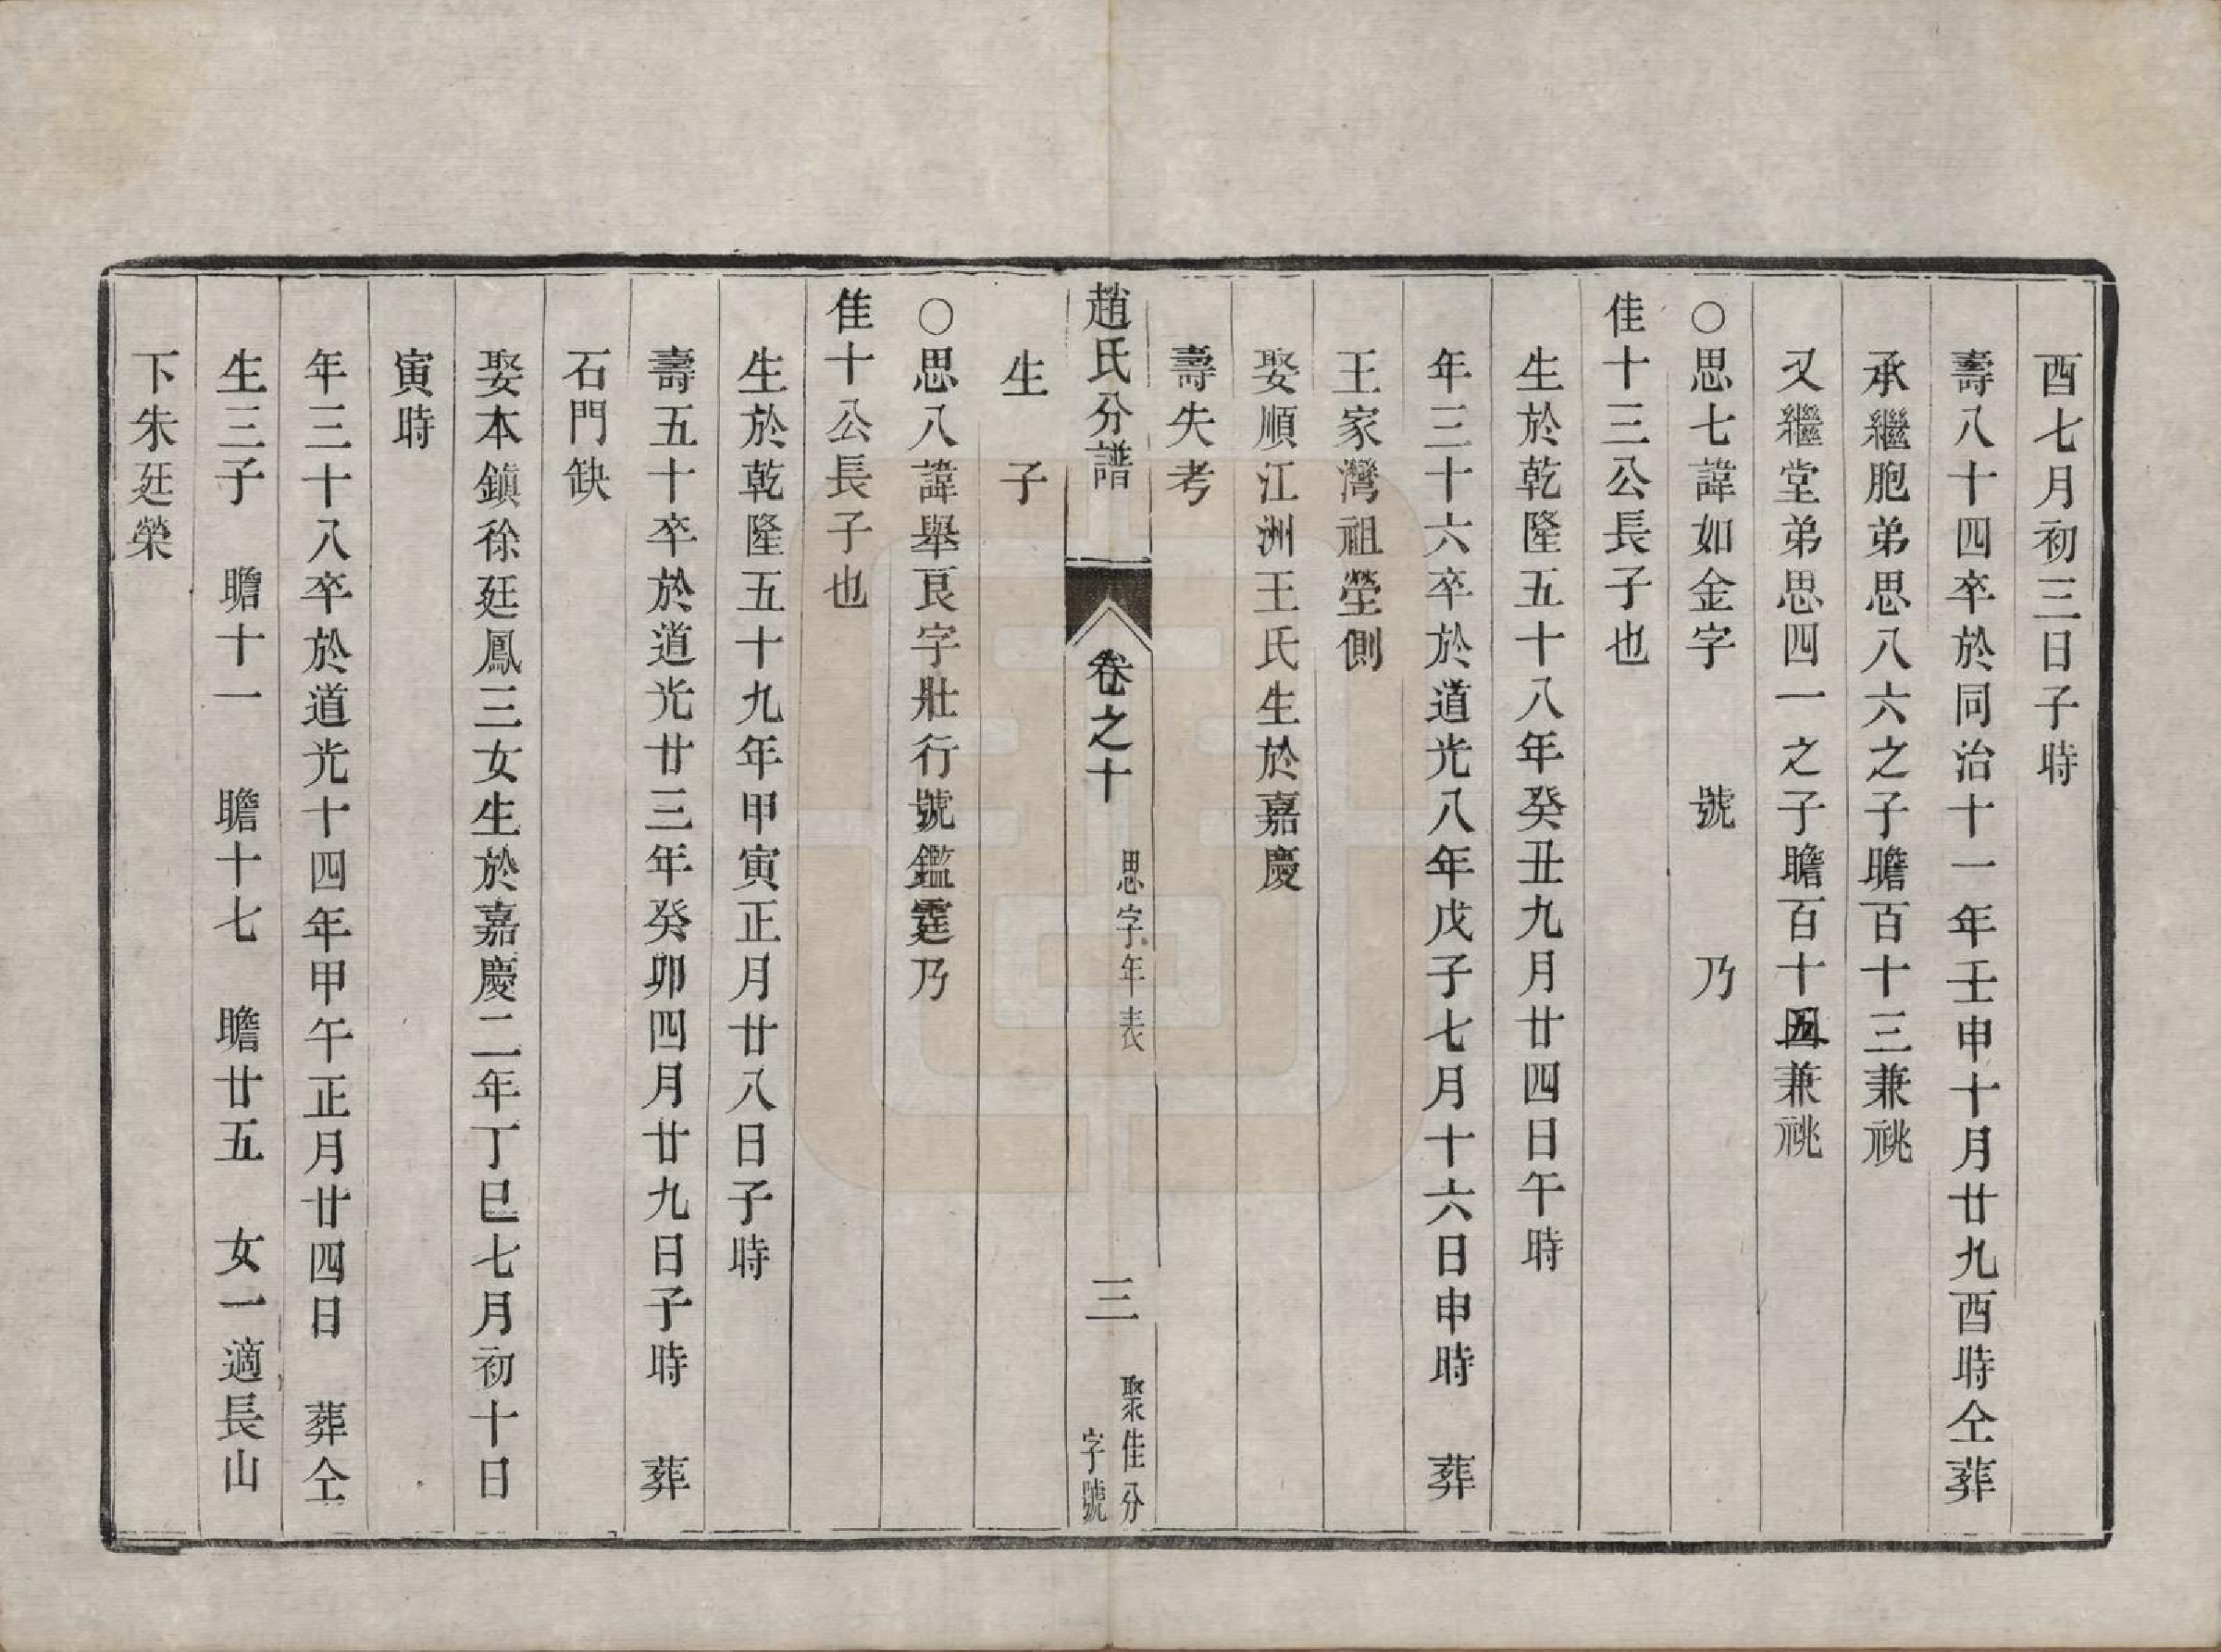 酉七月初三日子時
壽八十四卒於同治十一年壬申十月廿九酉時仝葬
承繼胞弟思八六之子瞻百十三兼祧
又繼堂弟思四一之子瞻百十五兼祧
○思七諱如金字　號　乃
佳十三公長子也
生於乾隆五十八年癸丑九月廿四日午時
年三十六卒於道光八年戊子七月十六日申時　葬
王家灣祖塋側
娶順江洲王氏生於嘉慶
壽失考
趙氏分譜　卷之十　思字年表　三　聚佳分字號
生　子
○思八諱舉良字壯行號鑑霆乃
佳十公長子也
生於乾隆五十九年甲寅正月廿八日子時
壽五十卒於道光廿三年癸卯四月廿九日子時　葬
石門缺
娶本鎮徐廷鳳三女生於嘉慶二年丁巳七月初十日
寅時
年三十八卒於道光十四年甲午正月廿四日　葬仝
生三子　瞻十一　瞻十七　瞻廿五　女一適長山
下朱廷榮